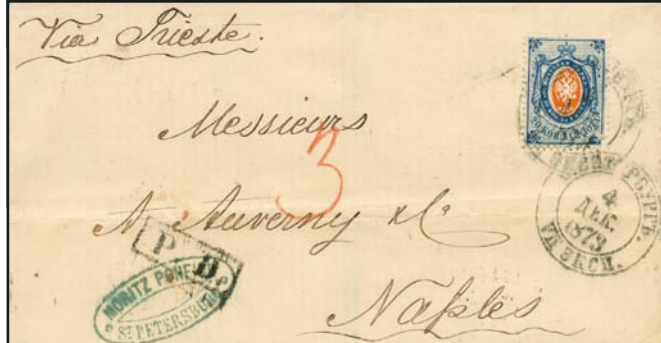 Via Trieste.
Messieurs
3
A. Auverny & Co
P. D.
MORITZ
ST PETERSBURG
Naples
20 КОП.
4
ДЕК.
1873